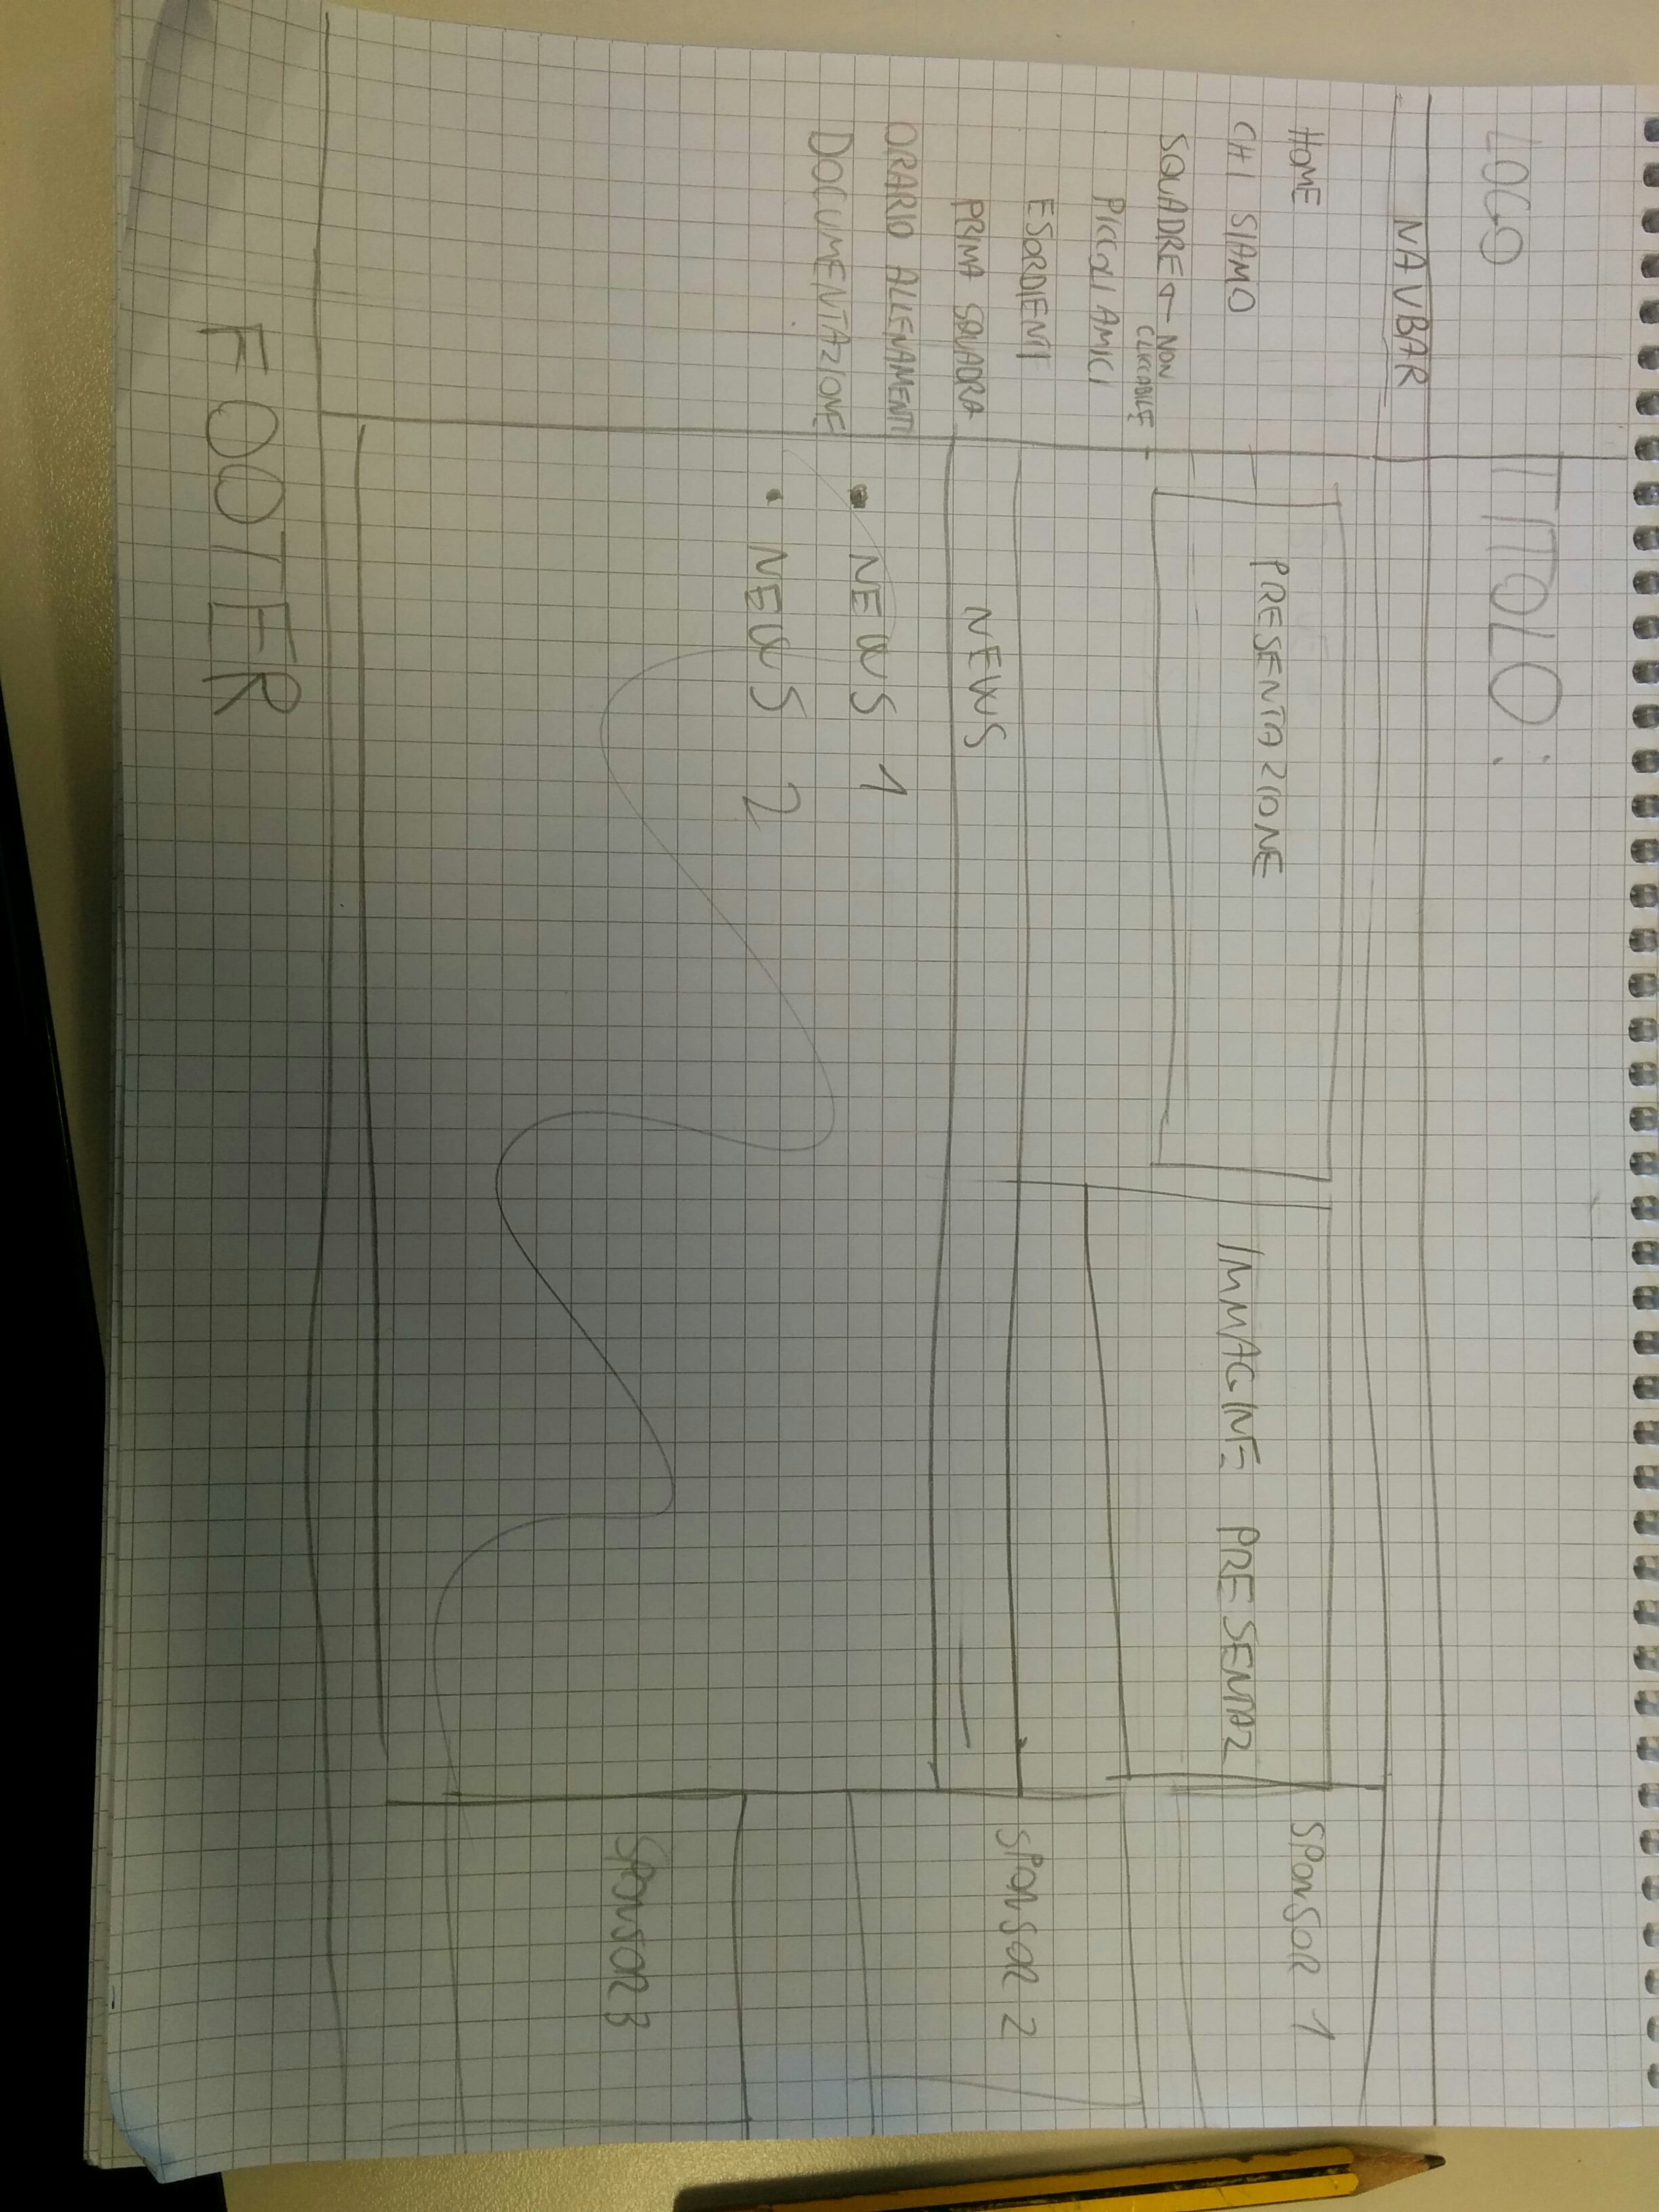 LOGO
TITOLO:
NAVBAR
HOME
CHI SIAMO
SQUADRE
NON
CLICCABILE
PICCOLI AMICI
ESORDIENTI
PRIMA SQUADRA
ORARIO ALLENAMENTI
DOCUMENTAZIONE
PRESENTAZIONE
IMMAGINE PRESENTAZ
NEWS
• NEWS 1
• NEWS 2
SPONSOR 1
SPONSOR 2
SPONSOR 3
FOOTER